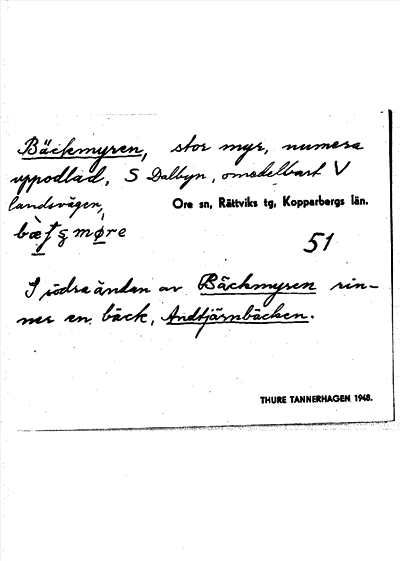 Bäckmyren, stor myr, numera
uppodlad, S Dalbyn, omedelbart V
landsvägen,
Ore sn, Rättviks tg, Kopparbergs län.
møre
51
I södra ändan av Bäckmyren rin-
ner en bäck, Andtjärnbäcken.
THURE TANNERHAGEN 1948.